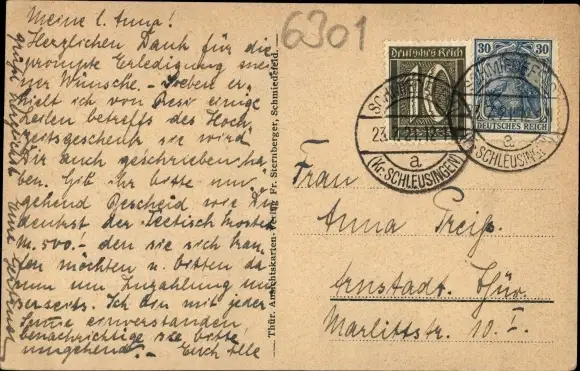 Meine l. Anna!
Herzlichen Dank für die
prompte Erledigung mei-
ner Wünsche. - Soeben er-
hielt ich von Resi einige
Zeilen betreffs des Hoch
zeitsgeschenks sie wird
Dir auch geschrieben ha-
ben. Gib ihr bitte um-
gehend Bescheid wie Du
denkst der Teetisch kostet
M. 500.- den sie sich kau-
fen möchten u. bitten da
rum um Zuzahlung un-
sererseits. Ich bin mit jeder
Summe einverstanden,
benachrichtige sie bitte
umgehend.- Euch alle
grüßt herzlich
6301
Deutsches Reich
10
30 30
DEUTSCHES REICH
SCHMIEDEFELD
a
(Kr. SCHLEUSINGEN)
SCHMIEDEFELD
a
(Kr. SCHLEUSINGEN)
Thür. Ansichtskarten-Verlag Fr. Sternberger, Schmiedefeld.
Frau
Anna Preiß
Arnstadt. Thür.
Marlittstr. 10. I.